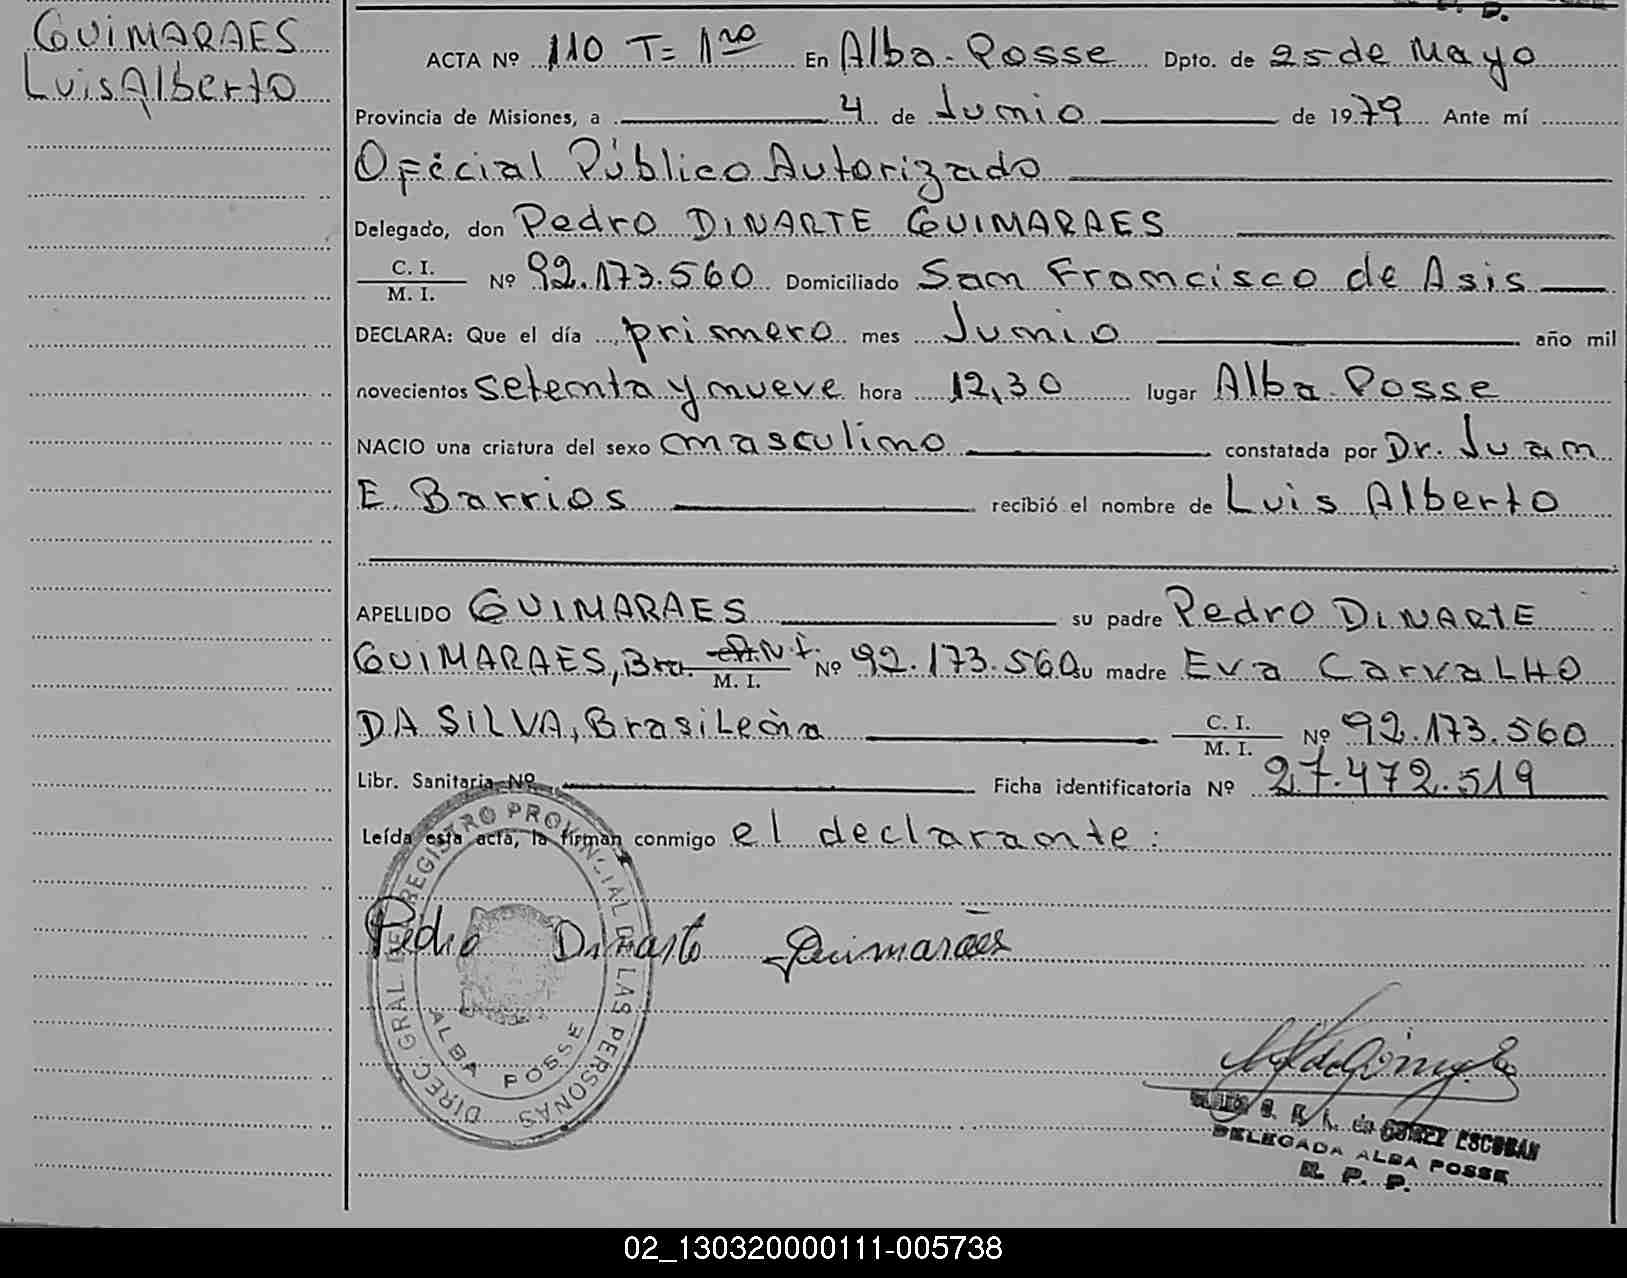 GUIMARAES
Luis Alberto
ACTA Nº 110 T= 1ro En Alba-Posse Dpto. de 25 de Mayo
Provincia de Misiones, a 4 de Junio de 1979 Ante mí
Oficial Público Autorizado
Delegado, don Pedro DINARTE GUIMARAES
C. I.
M. I. Nº 92.173.560 Domiciliado San Francisco de Asis
DECLARA: Que el día primero mes Junio año mil
novecientos setenta y nueve hora 12,30 lugar Alba Posse
NACIO una criatura del sexo masculino constatada por Dr. Juan
E. Barrios recibió el nombre de Luis Alberto
APELLIDO GUIMARAES su padre Pedro DINARTE
GUIMARAES, Bra. M. I. Nº 92.173.560 su madre Eva CarvaLHO
DA SILVA, BrasiLeña C. I.
M. I. Nº 92.173.560
Libr. Sanitaria Nº Ficha identificatoria Nº 27.472.519
Leída esta acta, la firman conmigo el declarante:
Pedro Dinarte Guimarães
DIREC. GRAL DEL REGISTRO PROVINCIAL DE LAS PERSONAS
ALBA POSSE
de GOMEZ ESCOBAR
DELEGADA ALBA POSSE
R. P. P.
02_130320000111-005738